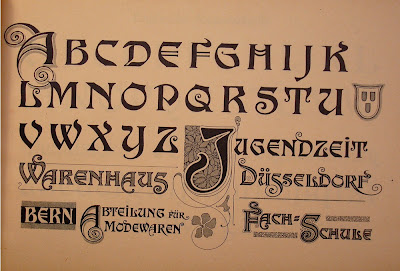 ABCDEFGHIJK
LMNOPQRSTU
VWXYZ JUGENDZEIT
WARENHAUS DÜSSELDORF
BERN ABTEILUNG FÜR MODEWAREN
FACH-SCHULE